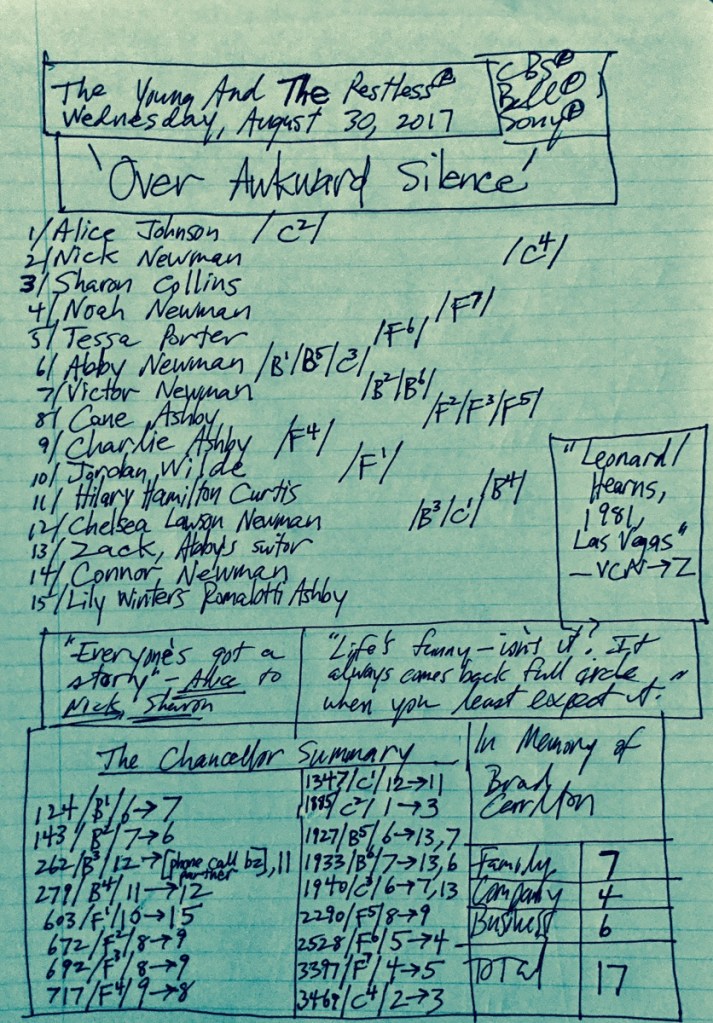 The Young And The Restless®
Wednesday, August 30, 2017
CBS®
Bell®
Sony®
'Over Awkward Silence'
1/ Alice Johnson /C²/
2/ Nick Newman /C⁴/
3/ Sharon Collins
4/ Noah Newman /F⁷/
5/ Tessa Porter /F⁶/
6/ Abby Newman /B¹/B⁵/C³/
7/ Victor Newman /B²/B⁶/
8/ Cane Ashby /F²/F³/F⁵/
9/ Charlie Ashby /F⁴/
10/ Jordan Wilde /F¹/
11/ Hilary Hamilton Curtis /B⁴/
12/ Chelsea Lawson Newman /B³/C¹/
13/ Zack, Abby's suitor
14/ Connor Newman
15/ Lily Winters Romalotti Ashby
"Leonard/
Hearns,
1981,
Las Vegas"
–VCN→Z
"Everyone's got a
story" – Alice to
Nick, Sharon
"Life's funny – isn't it? It
always comes back full circle
when you least expect it."
The Chancellor Summary
124/B¹/6→7
143/B²/7→6
262/B³/12→[phone call bz
partner],11
279/B⁴/11→12
603/F¹/10→15
672/F²/8→9
692/F³/8→9
717/F⁴/9→8
1347/C¹/12→11
1885/C²/1→3
1927/B⁵/6→13,7
1933/B⁶/7→13,6
1940/C³/6→7,13
2290/F⁵/8→9
2528/F⁶/5→4
3397/F⁷/4→5
3469/C⁴/2→3
In Memory of
Brad
Carrlton
Family 7
Company 4
Business 6
Total 17